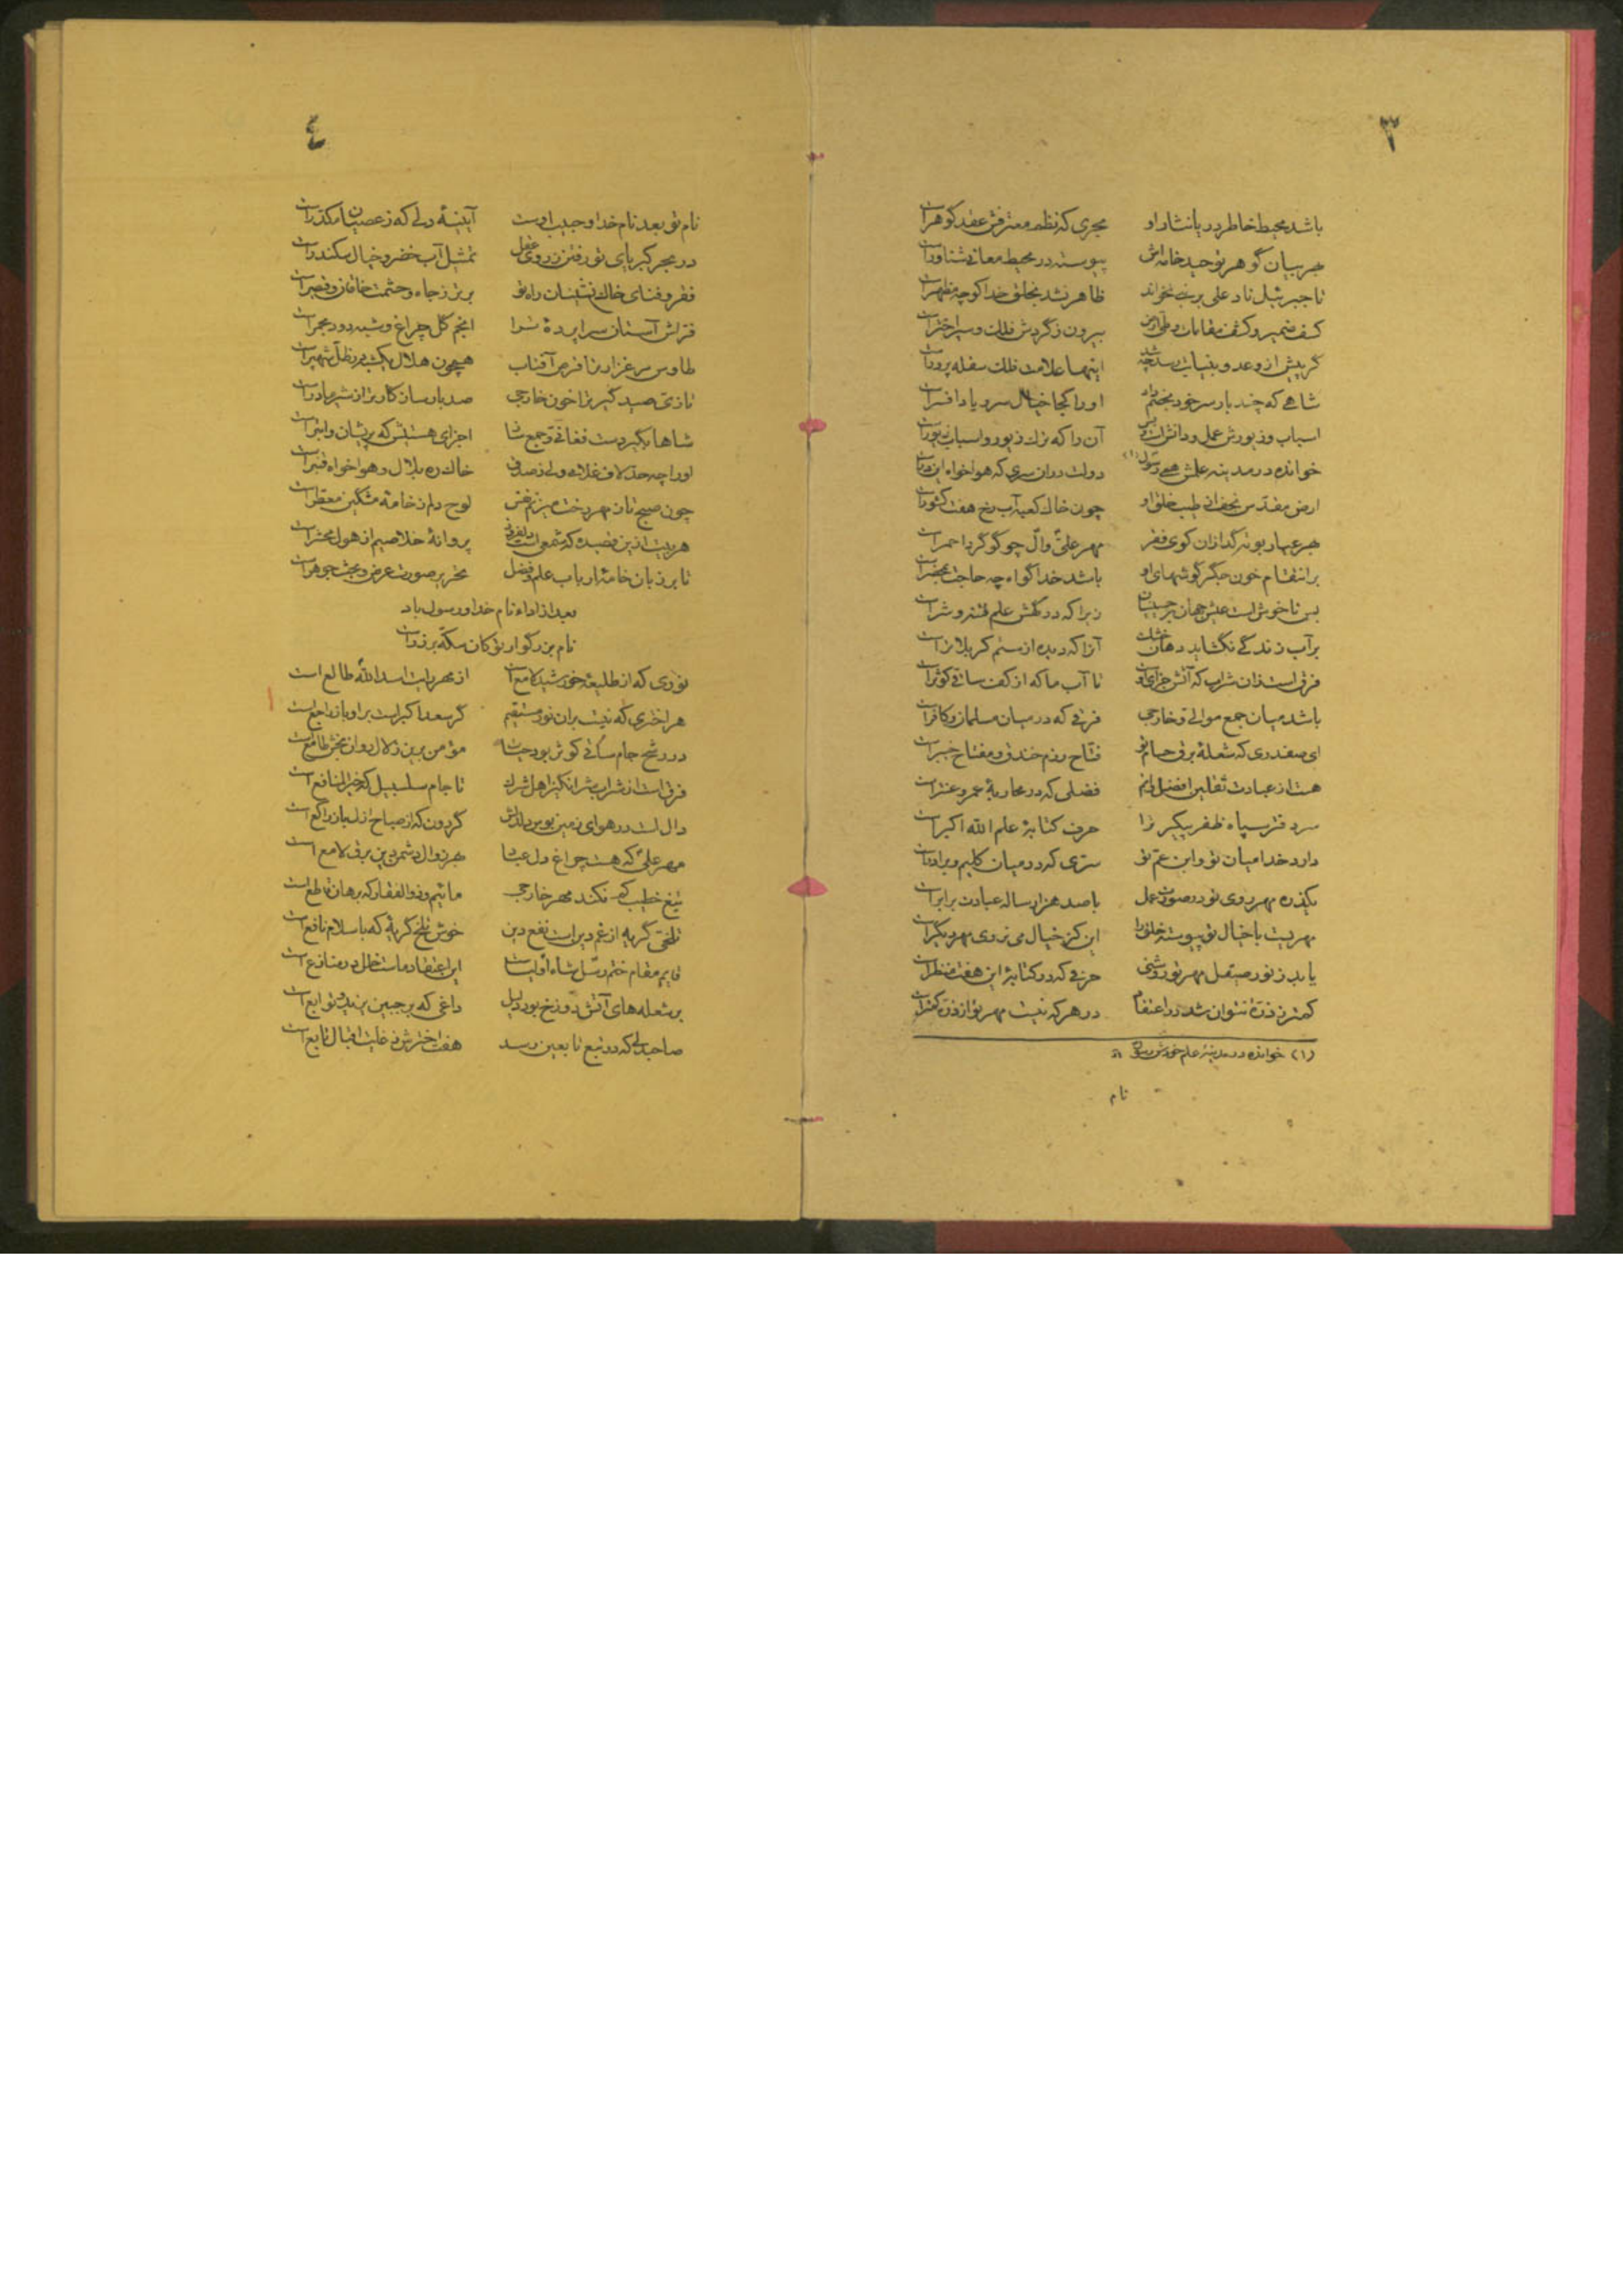 ۳
باشد محیط خاطر دریا نثار او بحری که نظم معترفش عقد گوهر است
بحر بیان گوهر توحید خامه اش پیوسته در محیط معانی شناور است
تا جبرئیل ناد علی بر نبی نخواند ظاهر نشد بخلق خدا کو چه مظهر است
کشف ضمیر و کشف مقامات و طی ارض بیرون ز گردش فلک و سیر اختر است
گر پیش از وعدو بنیابت رسد چه شد اینها علامت فلک سفله پرور است
شاهی که چند بار سر خود بخصم داد او را کجا خیال سر و یاد افسر است
اسباب وزیورش عمل و دانش است و بس آن را که ترک زیور و اسباب زیور است
خوانده در مدینه علمش همی رسول (۱) دولت در ان سری که هواخواه این در است
ارض مقدس نجف از طیب خلق او چون خاک کعبه آب رخ هفت کشور است
بحر عیار بوته گدازان کوی فقر مهر علی و آل چو گوگرد احمر است
بر انتقام خون جگر گوشهای او باشد خدا گواه چه حاجت بمحضر است
بس ناخوش است عیش جهان بر حسینیان زیرا که در کفش علم فتنه و شر است
بر آب زندگی نگشاید دهان خشک آنرا که دیده از ستم کربلا تر است
فرق است زان شراب که آتش جزای اوست تا آب ما که از کف ساقی کوثر است
باشد میان جمع موالی و خارجی فرقی که در میان مسلمان و کافر است
ای صفدری که شعله برق حسام تو فتاح رزم خندق و مفتاح خیبر است
هست از عبادت ثقلین افضل ای فضلی که در محاربه عمرو عنتر است
سر دفتر سپاه ظفر پیکر ترا حرف کتابه علم الله اکبر است
دارد خدا میان تو و ابن عم تو سری که در میان کلیم و برادر است
یکذره مهر روی تو در صورت عمل با صد هزار ساله عبادت برابر است
مهریست با خیال تو پیوسته خلق را این کز خیال می نروی مهر دیگر است
یابد ز نور صیقل مهر تو روشنی حرفی که در کتابه این هفت منظر است
کمتر ز ذره نتوان شد در اعتقاد در هر که نیست مهر تو از ذره کمتر است
(۱) خوانده در مدینه علم خودش رسول
نام
٤
نام تو بعد نام خدا و حبیب اوست آیینه دلی که ز عصیان مکدر است
در بحر کبریای تو رفتن ز روی عقل تمثیل آب خضر و خیال سکندر است
فقر و فنای خاک نشینان راه تو برتر ز جاه و حشمت خاقان و قیصر است
فراش آستان سراپرده ترا انجم گل چراغ و شبه دود مجمر است
طاوس مرغزار ترا قرص آفتاب همچون هلال یکشبه در ظل شهپر است
تازی صید گیر ترا خون خارجی صد بار سازگارتر از شیر مادر است
شاها بگیر دست فغانی و جمع ساز اجزای هستیش که پریشان و ابتر است
اورا چه حد لاف غلامی ولی ز صدق خاک ره بلال و هواخواه قنبر است
چون صبح تا ز مهر رخت میزنم نفس لوح دلم ز خامه مشکین معطر است
هر بیت ازین قصیده که شمعی است دلفروز پروانه خلاصیم از هول محشر است
تا بر زبان خامه ارباب علم و فضل تحریر صورت عرض و بحث جوهر است
بعد از اداء نام خدا و رسول باد
نام بزرگوار تو کان سکه بر زر است
نوری که از طلیعه خورشید لامع است از مهر بابت اسد الله طالع است
هر اختری که نیست بران نور مستقیم گر سعد اکبر است بر او باز راجع است
در رشح جام ساقی کوثر بود حیات مؤمن برین زلال روان بخش طامع است
فرق است از شراب شر انگیز اهل شرک تا جام سلسبیل که خیر المنافع است
دال است در هوای زمین بوس دلدلش گردون که از صباح ازل باز راکع است
مهر علی که هست چراغ دل عباد بهر زوال دشمن دین برق لامع است
تیغ خطیب کم نکند مهر خارجی مائیم و ذوالفقار که برهان قاطع است
تلخی گریه از غم دین است نفع دین خوش تلخ گریه که باسلام نافع است
قایم مقام ختم رسل شاه اولیاست این اعتقاد ماست خلل در منازع است
بر شعله های آتش دوزخ بود دلیل داغی که بر جبین یزید و توابع است
صاحبدلی که در تبع تابعین رسد هفت اخترش ز غایت اقبال تابع است